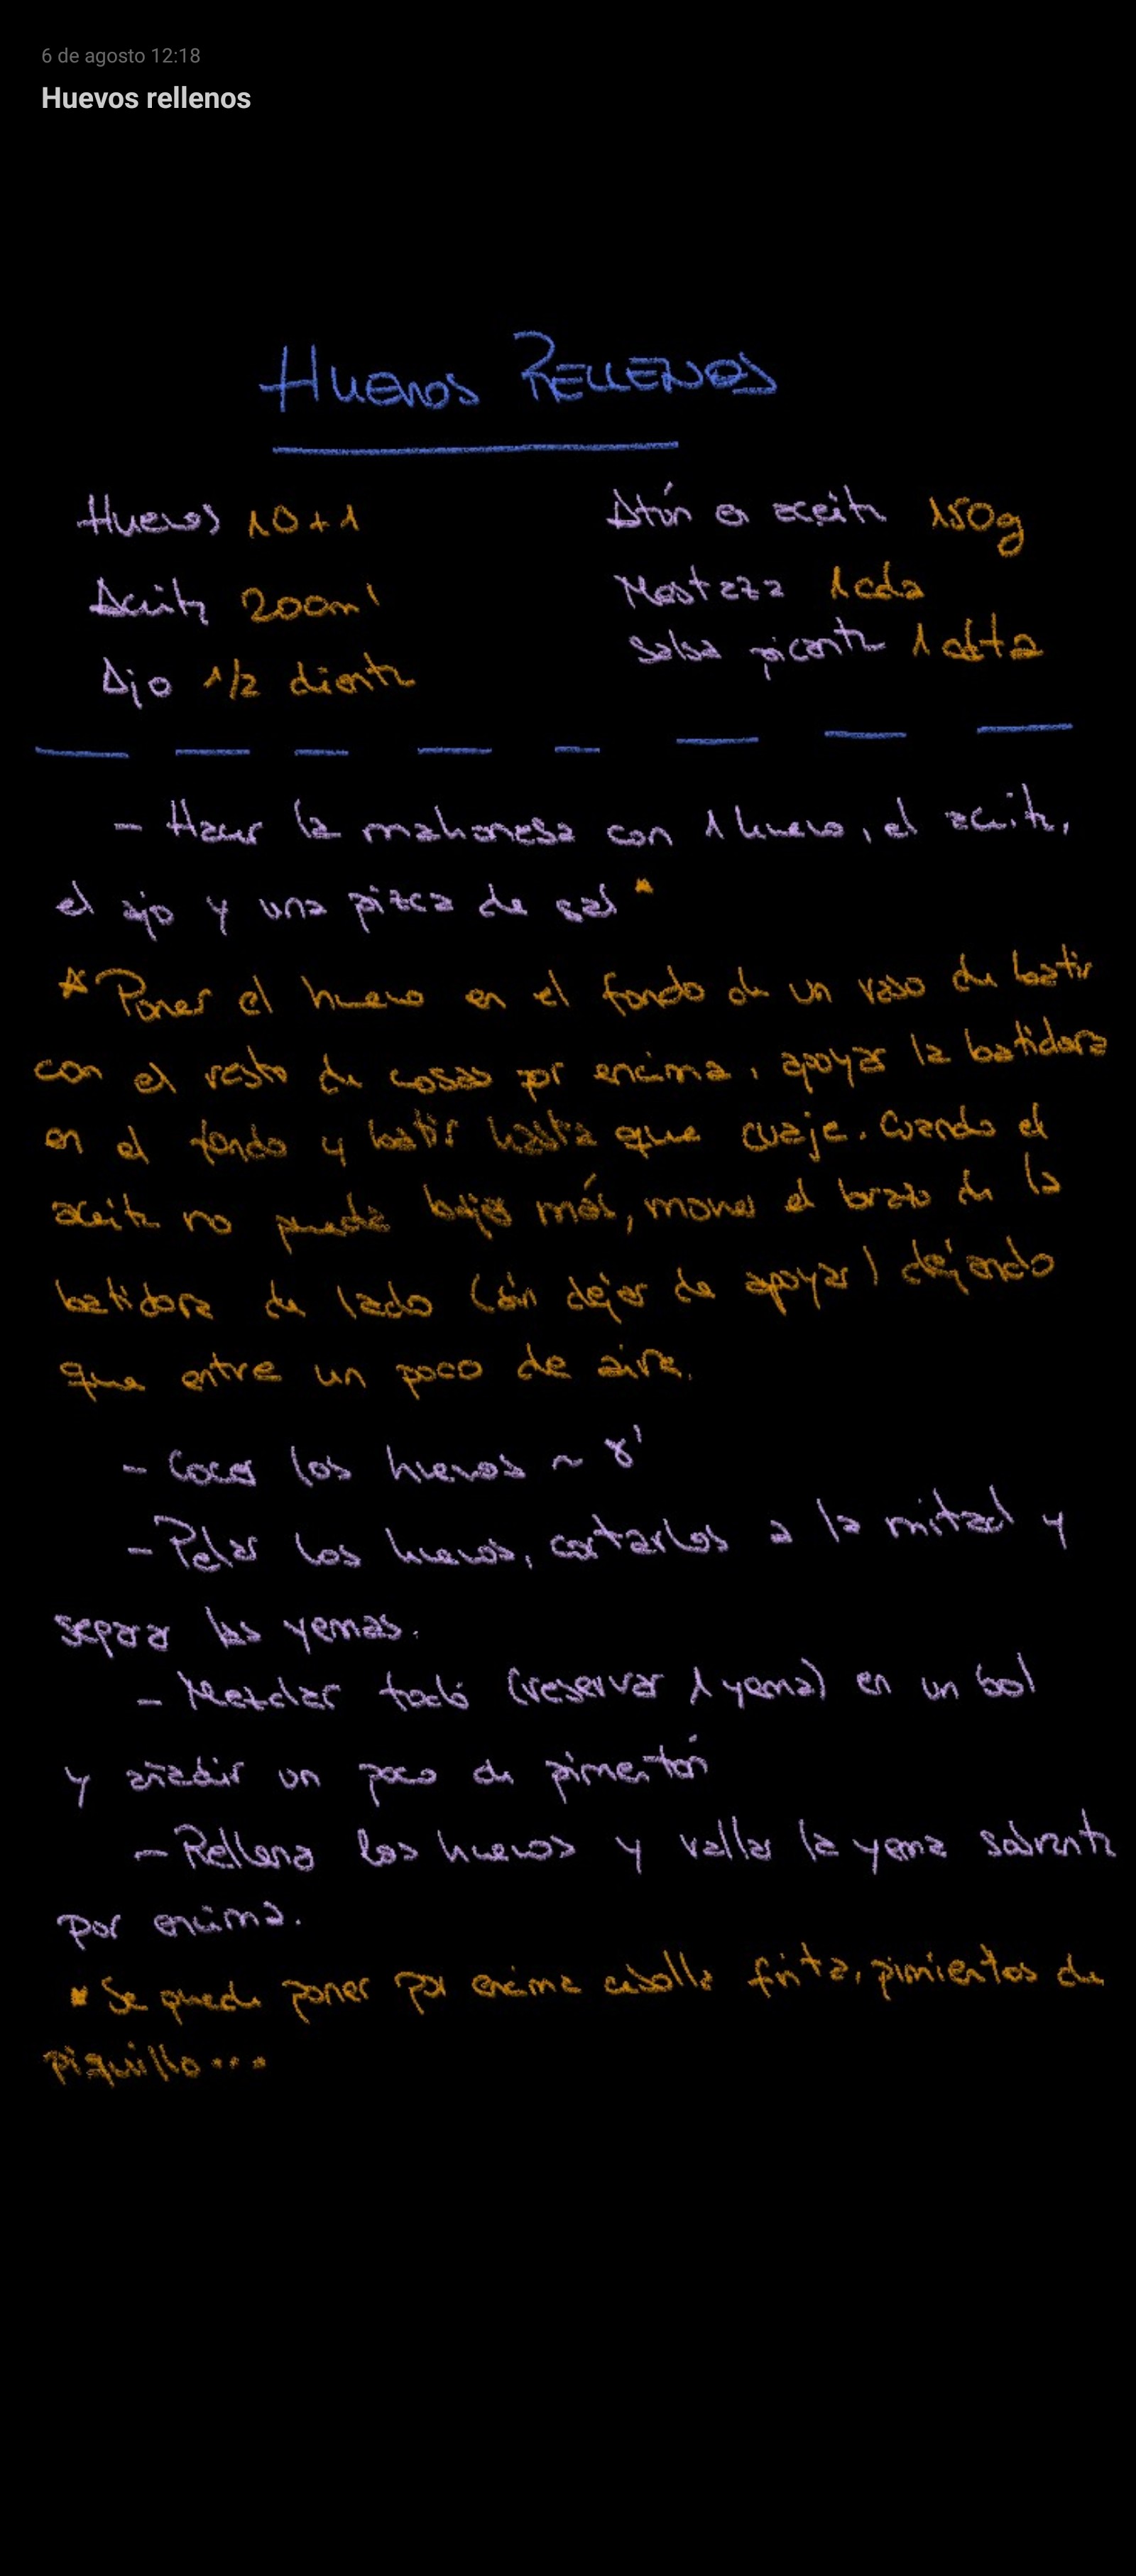 6 de agosto 12:18
Huevos rellenos
HUEVOS RELLENOS
Huevos 10+1
Atún en aceite 150g
Aceite 200ml
Mostaza 1cda
Salsa picante 1cdta
Ajo 1/2 diente
- Hacer la mahonesa con 1 huevo, el aceite,
el ajo y una pizca de sal *
* Poner el huevo en el fondo de un vaso de batir
con el resto de cosas por encima, apoyar la batidora
en el fondo y batir hasta que cuaje. Cuando el
aceite no pueda bajar más, mover el brazo de la
batidora de lado (sin dejar de apoyar) dejando
que entre un poco de aire.
- Cocer los huevos ~ 8'
- Pelar los huevos, cortarlos a la mitad y
separar las yemas.
- Mezclar todo (reservar 1 yema) en un bol
y añadir un poco de pimentón
- Rellenar los huevos y rallar la yema sobrante
por encima.
* Se puede poner por encima cebolla frita, pimientos de
piquillo...